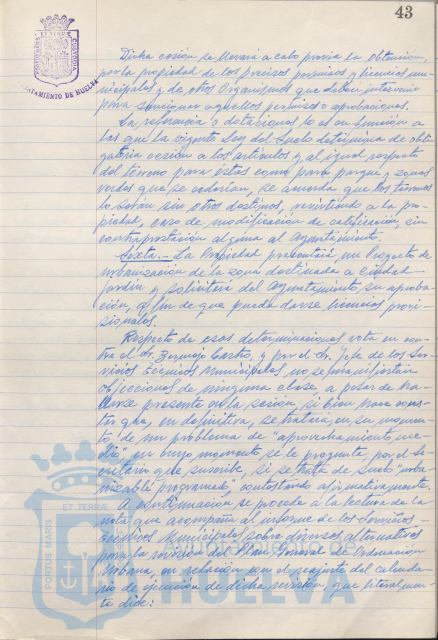 43
AYUNTAMIENTO DE HUELVA
Dicha cesión se llevará a cabo previa la obtención,
por la propiedad de los precisos permisos y licencias mu-
nicipales y de otros Organismos que deban intervenir
para sancionar aquellos permisos o aprobaciones.
La referencia a determinaciones lo es en función a
las que la vigente Ley del Suelo determina de obli-
gatoria cesión a los artículos y, al igual respecto
del terreno para éstas como para parque y zonas
verdes que se cederían, se acuerda que los terrenos
lo serán sin otros destinos, revirtiendo a la pro-
piedad, caso de modificación de calificación, sin
contraprestación alguna al Ayuntamiento.
Sexta.- La Propiedad presentará un Proyecto de
urbanización de la zona destinada a ciudad-
jardín y solicitará del Ayuntamiento su aproba-
ción, a fin de que pueda darse licencias provi-
sionales.
Respecto de esas determinaciones vota en con-
tra el Sr. Bermejo Castro, y por el Sr. Jefe de los Ser-
vicios Técnicos Municipales, no se manifiestan
objecciones de ninguna clase, a pesar de ha-
llarse presente en la sesión, si bien hace cons-
tar que, en definitiva, se tratará, en su momen-
to, de un problema de "aprovechamiento me-
dio", en cuyo momento se le pregunta, por el Se-
cretario que suscribe, si se trata de suelo "urba-
nizable programado", contestando afirmativamente.
A continuación se procede a la lectura de la
nota que acompaña al informe de los Servicios
Técnicos Municipales sobre diversas alternativas
para la revisión del Plan General de Ordenación
Urbana, en relación con el reajuste del calenda-
rio de ejecución de dicha revisión, que literalmen-
te dice:
PORTUS MARIS ET TERRAE
HUELVA